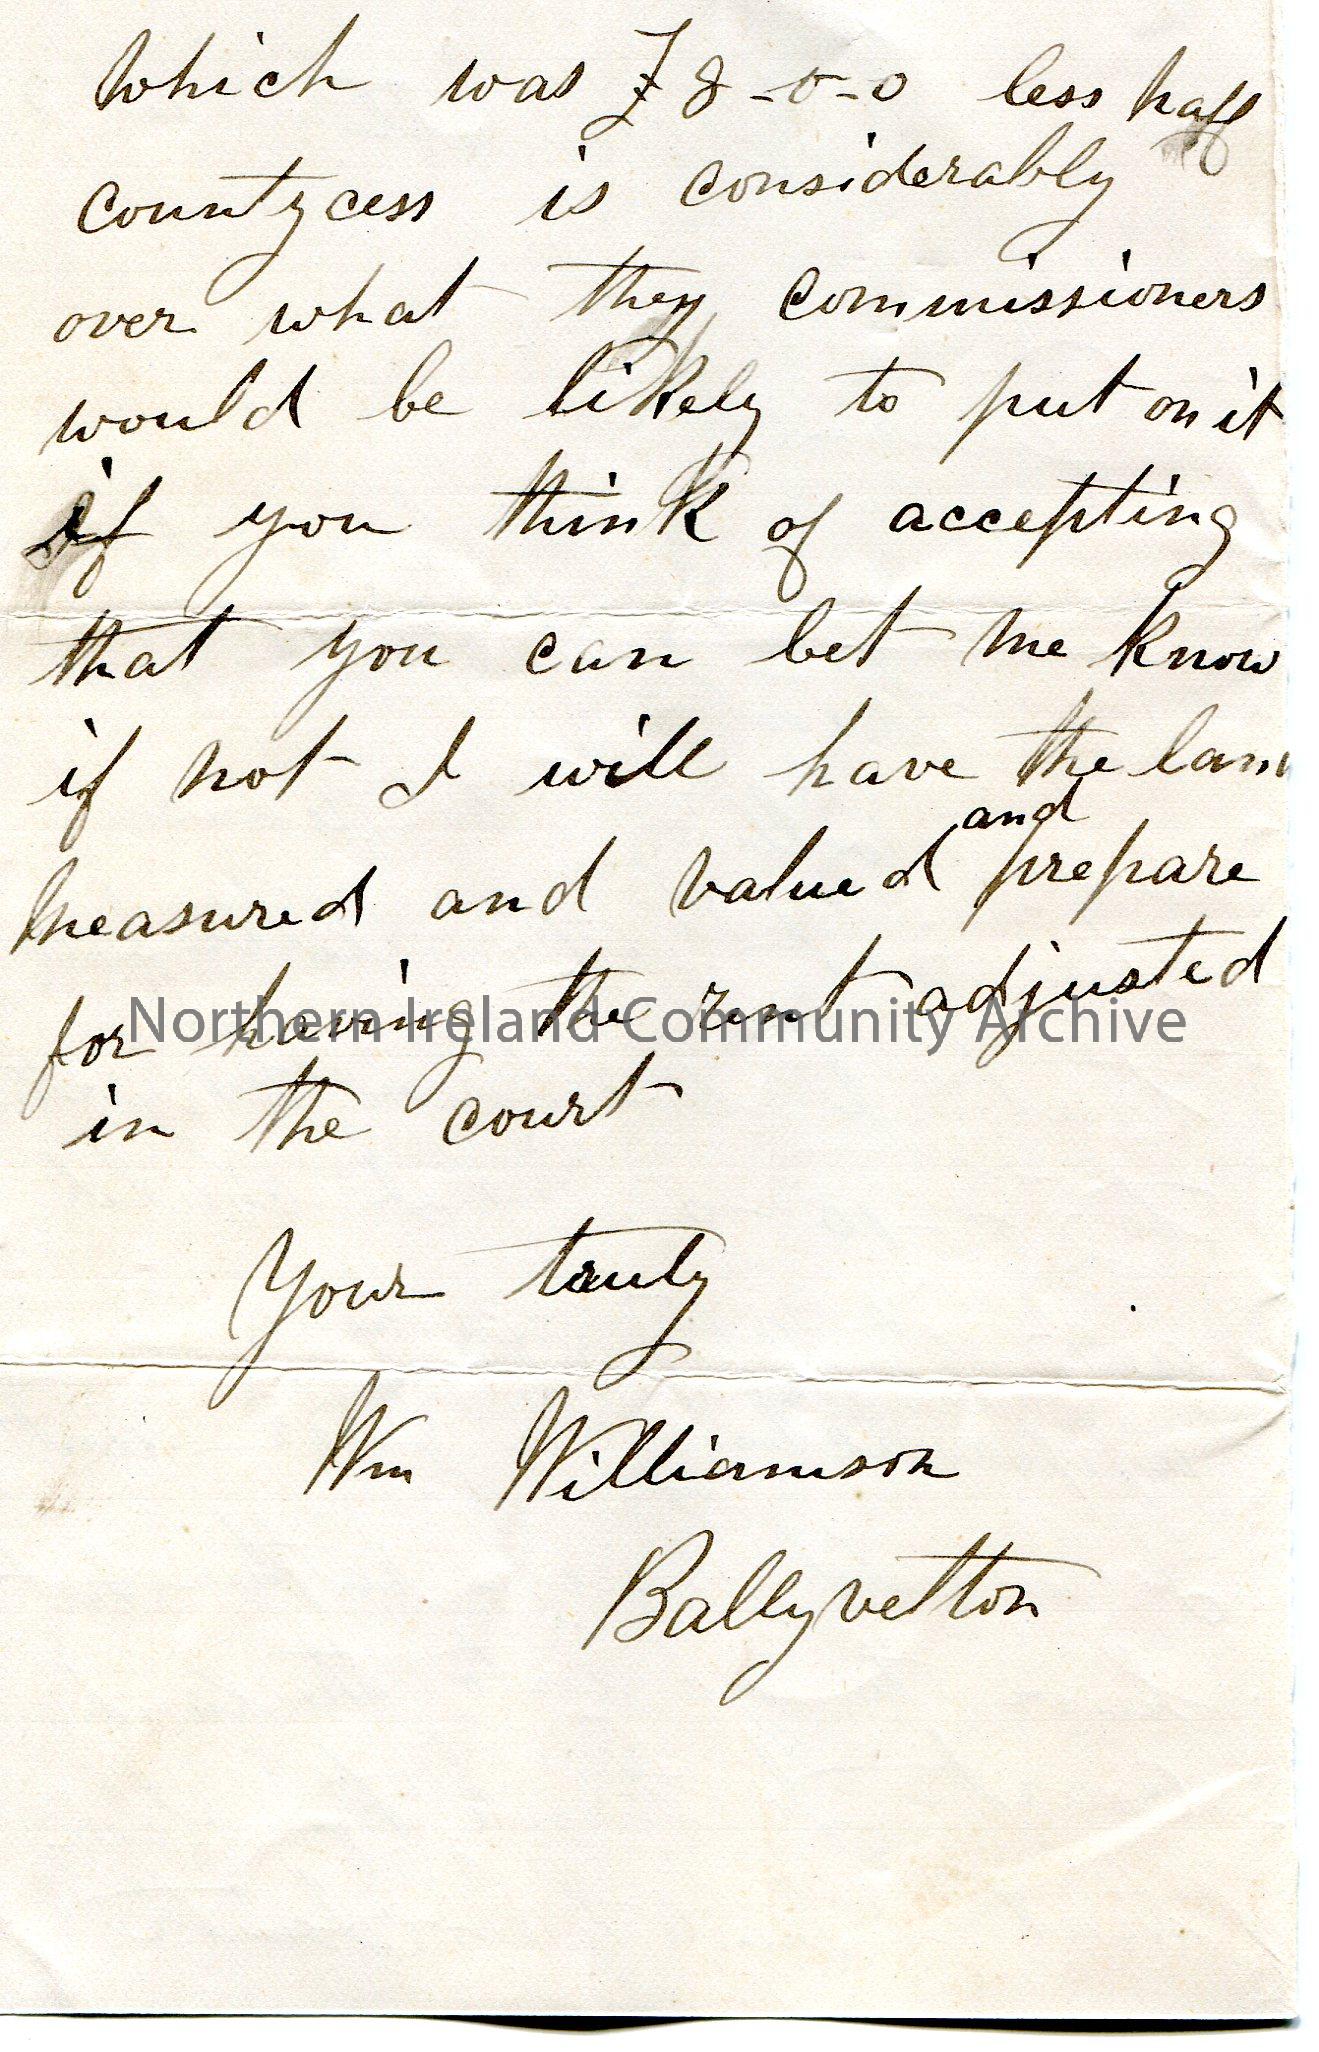 which was £8-0-0 less half
county cess is considerably
over what they commissioners
would be likely to put on it
if you think of accepting
that you can let me know
if not I will have the lan
and
measured and valued prepare
for having the rent adjusted
Northern Ireland Community Archive
in the court
Your truly
Wm Williamson
Ballyvelton